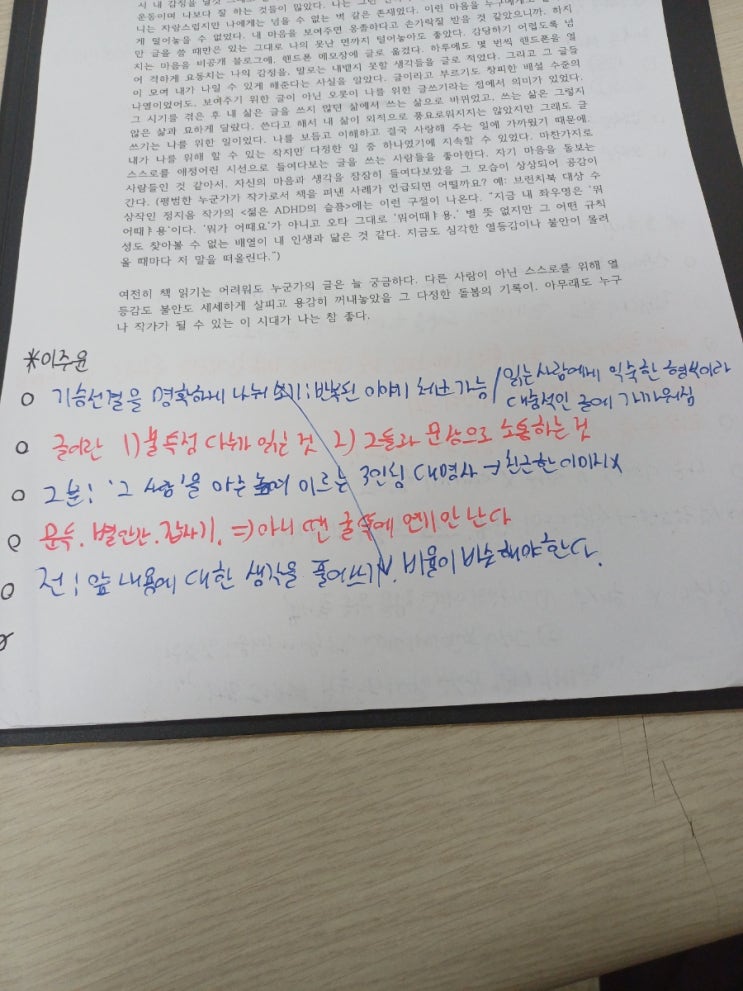 시 내 감정을
운동이며 나보다 잘 하는 것들이 많았다. 나는 그런
니는 자랑스럽지만 나에게는 넘을 수 없는 벽 같은 존재였다. 이런 마음을 누구에게도
게 털어놓을 수 없었다. 내 마음을 보여주면 옹졸하다고 손가락질 받을 것 같았으니까. 하지
만 글을 쓸 때만은 있는 그대로 나의 못난 면까지 털어놓아도 좋았다. 감당하기 어렵도록 넘
치는 마음을 비공개 블로그에, 핸드폰 메모장에 글로 옮겼다. 하루에도 몇 번씩 핸드폰을 열
어 격하게 요동치는 나의 감정을, 말로는 내뱉지 못할 생각들을 글로 적었다. 그리고 그 글들
이 모여 내가 나일 수 있게 해준다는 사실을 알았다. 글이라고 부르기도 창피한 배설 수준의
나열이었어도, 보여주기 위한 글이 아닌 오롯이 나를 위한 글쓰기라는 점에서 의미가 있었다.
그 시기를 겪은 후 내 삶은 글을 쓰지 않던 삶에서 쓰는 삶으로 바뀌었고, 쓰는 삶은 그렇지
않은 삶과 묘하게 달랐다. 쓴다고 해서 내 삶이 외적으로 풍요로워지지는 않았지만 그래도 글
쓰기는 나를 위한 일이었다. 나를 보듬고 이해하고 결국 사랑해 주는 일에 가까웠기 때문에.
내가 나를 위해 할 수 있는 작지만 다정한 일 중 하나였기에 지속할 수 있었다. 마찬가지로
스스로를 애정어린 시선으로 들여다보는 글을 쓰는 사람들을 좋아한다. 자기 마음을 돌보는
사람들인 것 같아서. 자신의 마음과 생각을 잠잠히 들여다보았을 그 모습이 상상되어 공감이
간다. (평범한 누군가가 작가로서 책을 펴낸 사례가 언급되면 어떨까요? 예: 브런치북 대상 수
상작인 정지음 작가의 <젊은 ADHD의 슬픔>에는 이런 구절이 나온다. “지금 내 좌우명은 '뭐
어때ㅑ용'이다. '뭐가 어때요'가 아니고 오타 그대로 '뭐어때ㅑ용.' 별 뜻 없지만 그 어떤 규칙
성도 찾아볼 수 없는 배열이 내 인생과 닮은 것 같다. 지금도 심각한 열등감이나 불안이 몰려
올 때마다 저 말을 떠올린다.”)
여전히 책 읽기는 어려워도 누군가의 글은 늘 궁금하다. 다른 사람이 아닌 스스로를 위해 열
등감도 불안도 세세하게 살피고 용감히 꺼내놓았을 그 다정한 돌봄의 기록이. 아무래도 누구
나 작가가 될 수 있는 이 시대가 나는 참 좋다.
*이주윤
○ 기승전결을 명확하게 나눠 쓰기 : 반복된 이야기 체크 가능 / 읽는 사람에게 익숙한 형식이라
대중적인 글에 가까워짐
○ 글이란 1) 불특정 다수가 읽는 것 2) 그들과 문장으로 소통하는 것
○ 그분 : '그 사람'을 아주 높여 이르는 3인칭 대명사 → 친근한 이미지 X
○ 문득. 별안간. 갑자기. ⇒ 아니 땐 굴뚝에 연기 안 난다
○ 전 : 앞 내용에 대한 생각을 풀어쓰기. 비율이 비슷해야 한다.